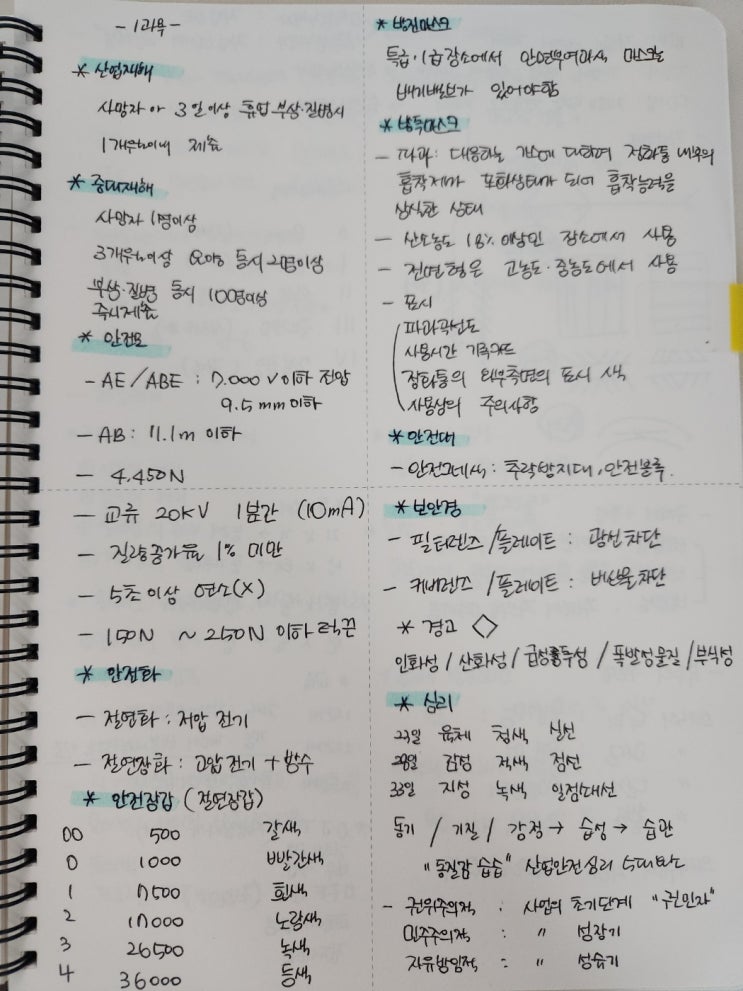 - 1과목 -
* 산업재해
사망자 or 3일이상 휴업 부상·질병시
1개월이내 제출
* 중대재해
사망자 1명이상
3개월이상 요양 동시 2명이상
부상·질병 동시 10명이상
즉시제출
* 안전모
- AE/ABE : 7.000V이하 전압
9.5mm이하
- AB: 11.1m 이하
- 4.450N
- 교류 20KV 1분간 (10mA)
- 질량증가율 1% 미만
- 5초이상 연소(X)
- 150N ~ 250N 이하 턱끈
* 안전화
- 절연화 : 저압 전기
- 절연장화 : 고압전기 + 방수
* 안전장갑 (절연장갑)
00 500 갈색
0 1000 빨간색
1 7500 흰색
2 17000 노랑색
3 26500 녹색
4 36000 등색
* 방진마스크
특급·1급 장소에서 안면부여과식 마스크는
배기밸브가 있어야함
* 방독마스크
- 파과: 대응하는 가스에 대하여 정화통 내부의
흡착제가 포화상태가 되어 흡착능력을
상실한 상태
- 산소농도 18% 이상인 장소에서 사용
- 전면형은 고농도·중농도에서 사용
- 표시
파과곡선도
사용시간 기록카드
정화통의 외부측면의 표시 색
사용상의 주의사항
* 안전대
- 안전그네식: 추락방지대, 안전블록.
* 보안경
- 필터렌즈 /플레이트 : 광선차단
- 커버렌즈 /플레이트 : 비산물차단
* 경고 ◇
인화성 / 산화성 / 급성독성 / 폭발성물질 / 부식성
* 심리
23일 육체 청색 실선
28일 감성 적색 점선
33일 지성 녹색 일점쇄선
동기 / 기질 / 감정 → 습성 → 습관
"동질감 습습" 산업안전심리 5대요소
- 권위주의적 : 사업의 초기단계 "권민자"
민주주의적 : " 성장기
자유방임적 : " 성숙기